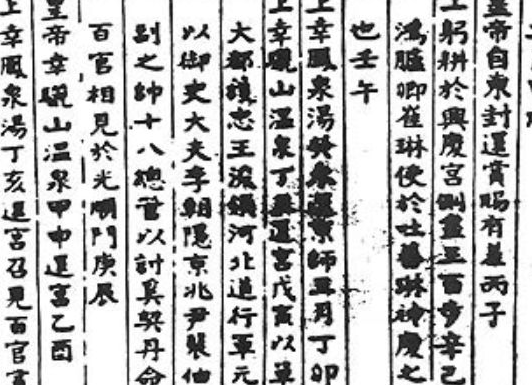 皇帝自東封還賞賜有差丙子
上躬耕於興慶宮側盡三百步辛巳
鴻臚卿崔琳使於吐蕃琳神慶之
也壬午
上幸鳳泉湯癸未還京師五月丁卯
上幸驪山溫泉丁丑還宮戊寅以單
大都護忠王浚領河北道行軍元
以御史大夫李朝隱京兆尹裴伷
副之帥十八總管以討奚契丹命
百官相見於光順門庚辰
皇帝幸驪山温泉甲申還宮乙酉
上幸鳳泉湯丁亥還宮召見百官